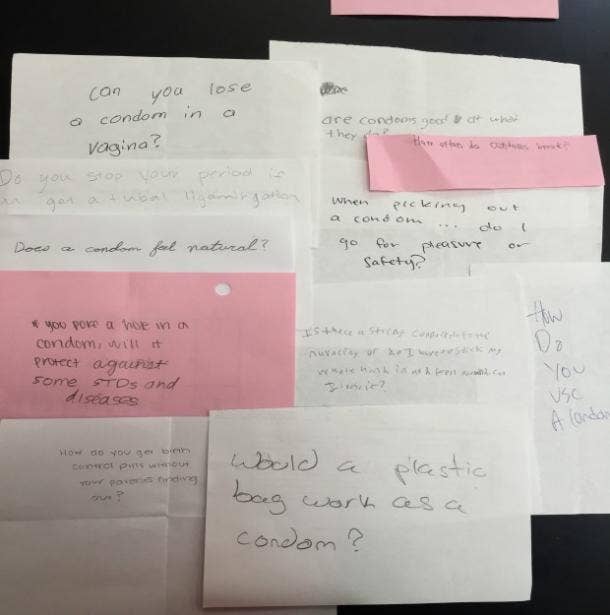 can you lose
a condom in a
vagina?
are condoms good at what
they do?
How often do condoms break?
Do you stop your period is
you get a tubal ligamirgation
when picking out
a condom ... do I
go for pleasure or
safety?
Does a condom feel natural?
if you poke a hole in a
condom, will it
protect against
some STDs and
diseases
Is there a string connected to the
nuvaring or do I have to stick my
whole hand in and
How
Do
You
USC
A condom
How do you get birth
control pills without
your parents finding
out?
Would a plastic
bag work as a
condom?